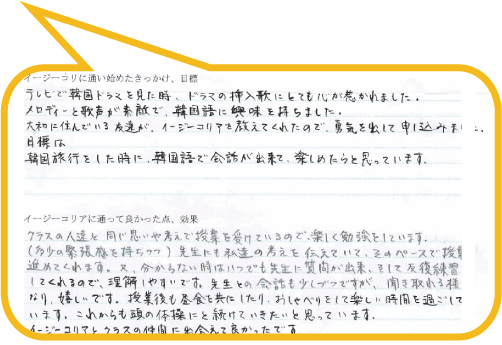 イージーコリに通い始めたきっかけ、目標
テレビで韓国ドラマを見た時、ドラマの挿入歌にとても心が惹かれました。
メロディーと歌声が素敵で、韓国語に興味を持ちました。
大和に住んでいる友達が、イージーコリアを教えてくれたので、勇気を出して申し込みまし
目標は
韓国旅行をした時に、韓国語で会話が出来て、楽しめたらと思っています。
イージーコリアに通って良かった点、効果
クラスの人達と同じ思いや考えで授業を受けているので、楽しく勉強をしています。
(多少の緊張感を持ちつつ)先生にも私達の考えを伝えていて、そのペースで授業
進めてくれます。又、分からない時はいつでも先生に質問が出来、そして反復練習
してくれるので、理解しやすいです。先生との会話も少しづつですが、聞き取れる様
なり、嬉しいです。授業後も昼食を共にしたり、おしゃべりをして楽しい時間を過ごして
います。これからも頭の体操にと続けていきたいと思っています。
イージーコリアとクラスの仲間に出会えて良かったです